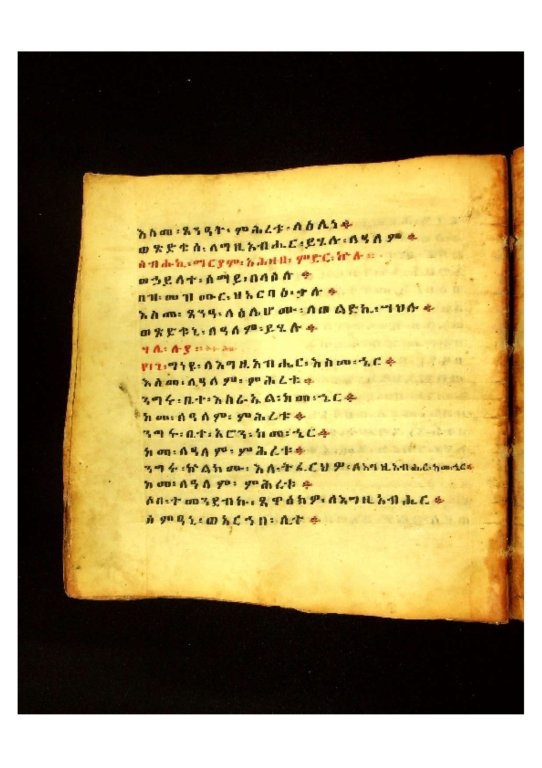 እስመ፡ጸንዓት፡ምሕረቱ፡ላዕሌነ፨
ወጽድቁሰ፡ለግዚአብሔር፡ይሄሉ፡ለዓለም፨
ሰብሑኪ፡ማርያም፡አሕዛበ፡ምድር፡ኵሉ፡
ወኃይለት፡ሰማይ፡በላዕሉ፨
በዝ፡መዝሙር፡ዘአርባዕ፡ቃሉ፨
እስመ፡ጸንዓ፡ላዕሌሆሙ፡ለወልድኪ፡ሣህሉ፨
ወጽድቁኒ፡ለዓለም፡ይሄሉ፨
ሃሌ፡ሉያ፡
ግነዩ፡ለእግዚአብሔር፡እስመ፡ኄር፨
እስመ፡ለዓለም፡ምሕረቱ፨
ንግሩ፡ቤተ፡እስራኤል፡ከመ፡ኄር፨
ከመ፡ለዓለም፡ምሕረቱ፨
ንግሩ፡ቤተ፡አሮን፡ከመ፡ኄር፨
ከመ፡ለዓለም፡ምሕረቱ፨
ንግሩ፡ኵልክሙ፡እለ፡ትፈርህዎ፡ለእግዚአብሔር፡ከመ፡ኄር፨
ከመ፡ለዓለም፡ምሕረቱ፨
ሶበ፡ተመንደብኩ፡ጸዋዕክዎ፡ለእግዚአብሔር፨
ሰምዓኒ፡ወአርኀበ፡ሊተ፨